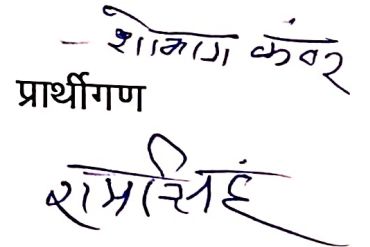 - शोभाग कंवर
प्रार्थीगण
रामसिंह